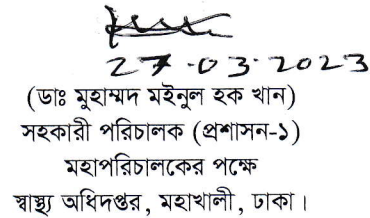 27.03.2023
(ডাঃ মুহাম্মদ মইনুল হক খান)
সহকারী পরিচালক (প্রশাসন-১)
মহাপরিচালকের পক্ষে
স্বাস্থ্য অধিদপ্তর, মহাখালী, ঢাকা।